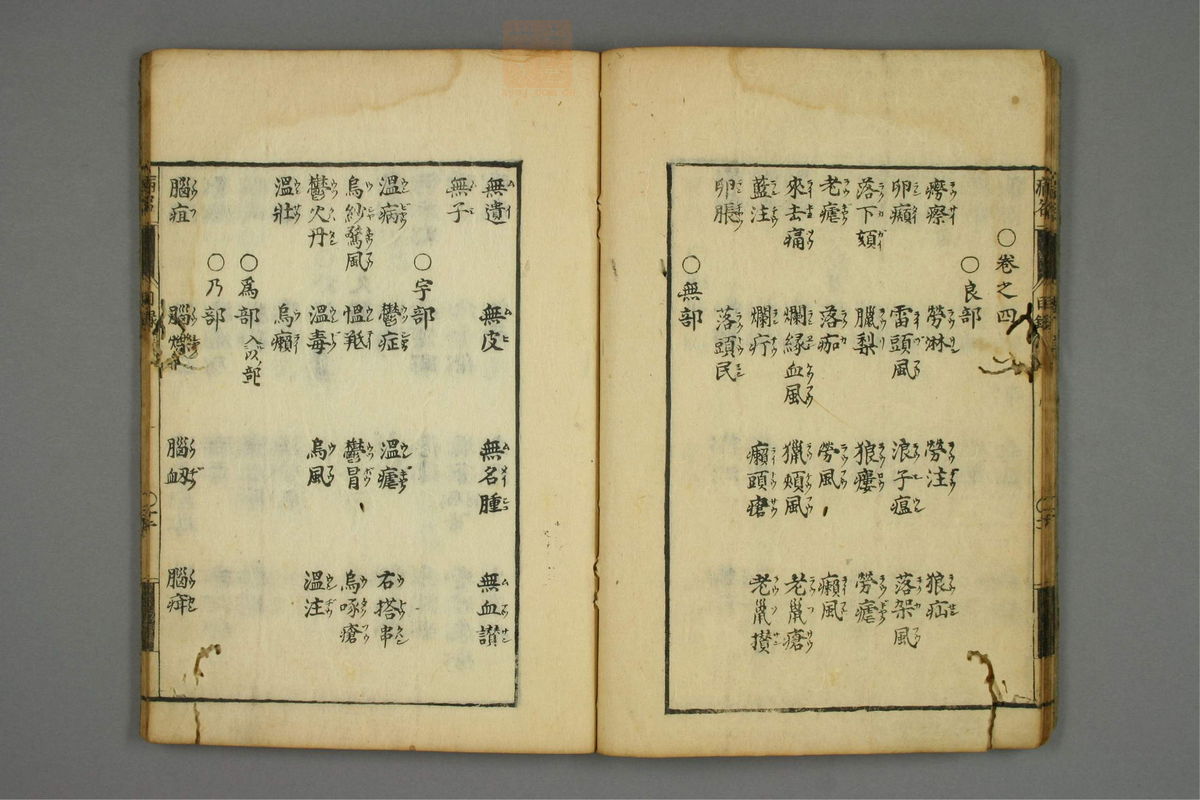 〇卷之四
〇良部
癆瘵 勞淋 勞注 狼疝
卵㿗 雷頭風 浪子瘟 落架風
落下頦 臘梨 狼瘻 勞瘧
老瘧 落茄 勞風 癩風
來去痛 爛緣血風 獵頰風 老鼠瘡
藍注 爛疔 癩頭瘡 老鼠攅
卵脹 落頭民
〇無部
無遺 無皮 無名腫 無血讃
無子
〇宇部
溫病 鬱症 溫瘧 右搭串
烏紗驚風 慍羝 鬱冒 烏啄瘡
鬱火丹 溫毒 烏風 溫注
溫壯 烏癩
〇爲部 入以部
〇乃部
腦疽 腦 腦衄 腦痹